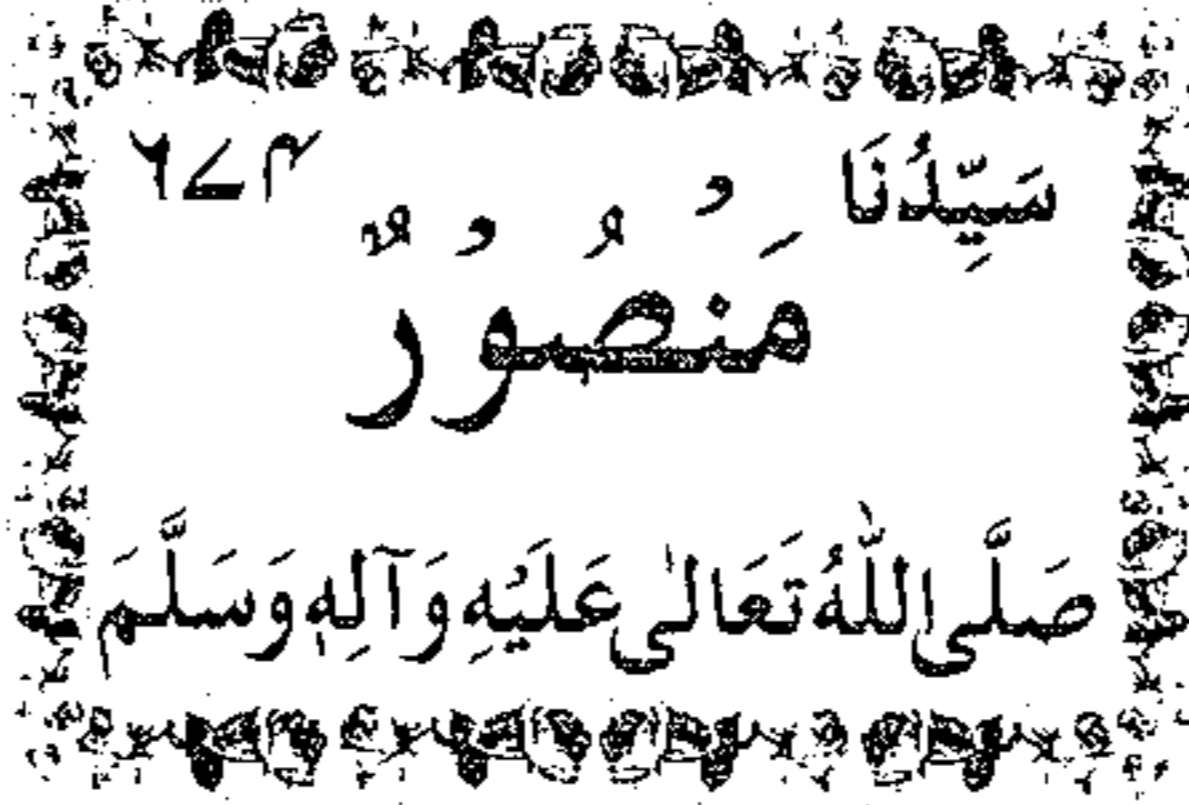 سَيِّدُنَا ٦٧٤
مَنْصُوْرٌ
صَلَّى اللّٰهُ تَعَالٰى عَلَيْهِ وَآلِهٖ وَسَلَّمَ